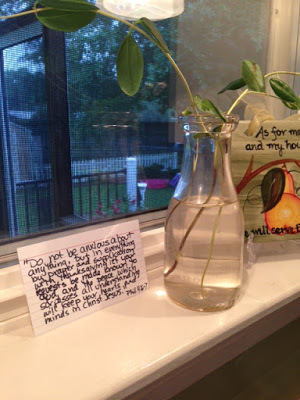 "Do not be anxious about
anything, but in everything
by prayer and supplication
with thanksgiving let your
requests be made known to
God. And the peace which
surpasses all understanding
will keep your hearts and
minds in Christ Jesus. Phil 4:6-7
As for me
and my hou
we will serve